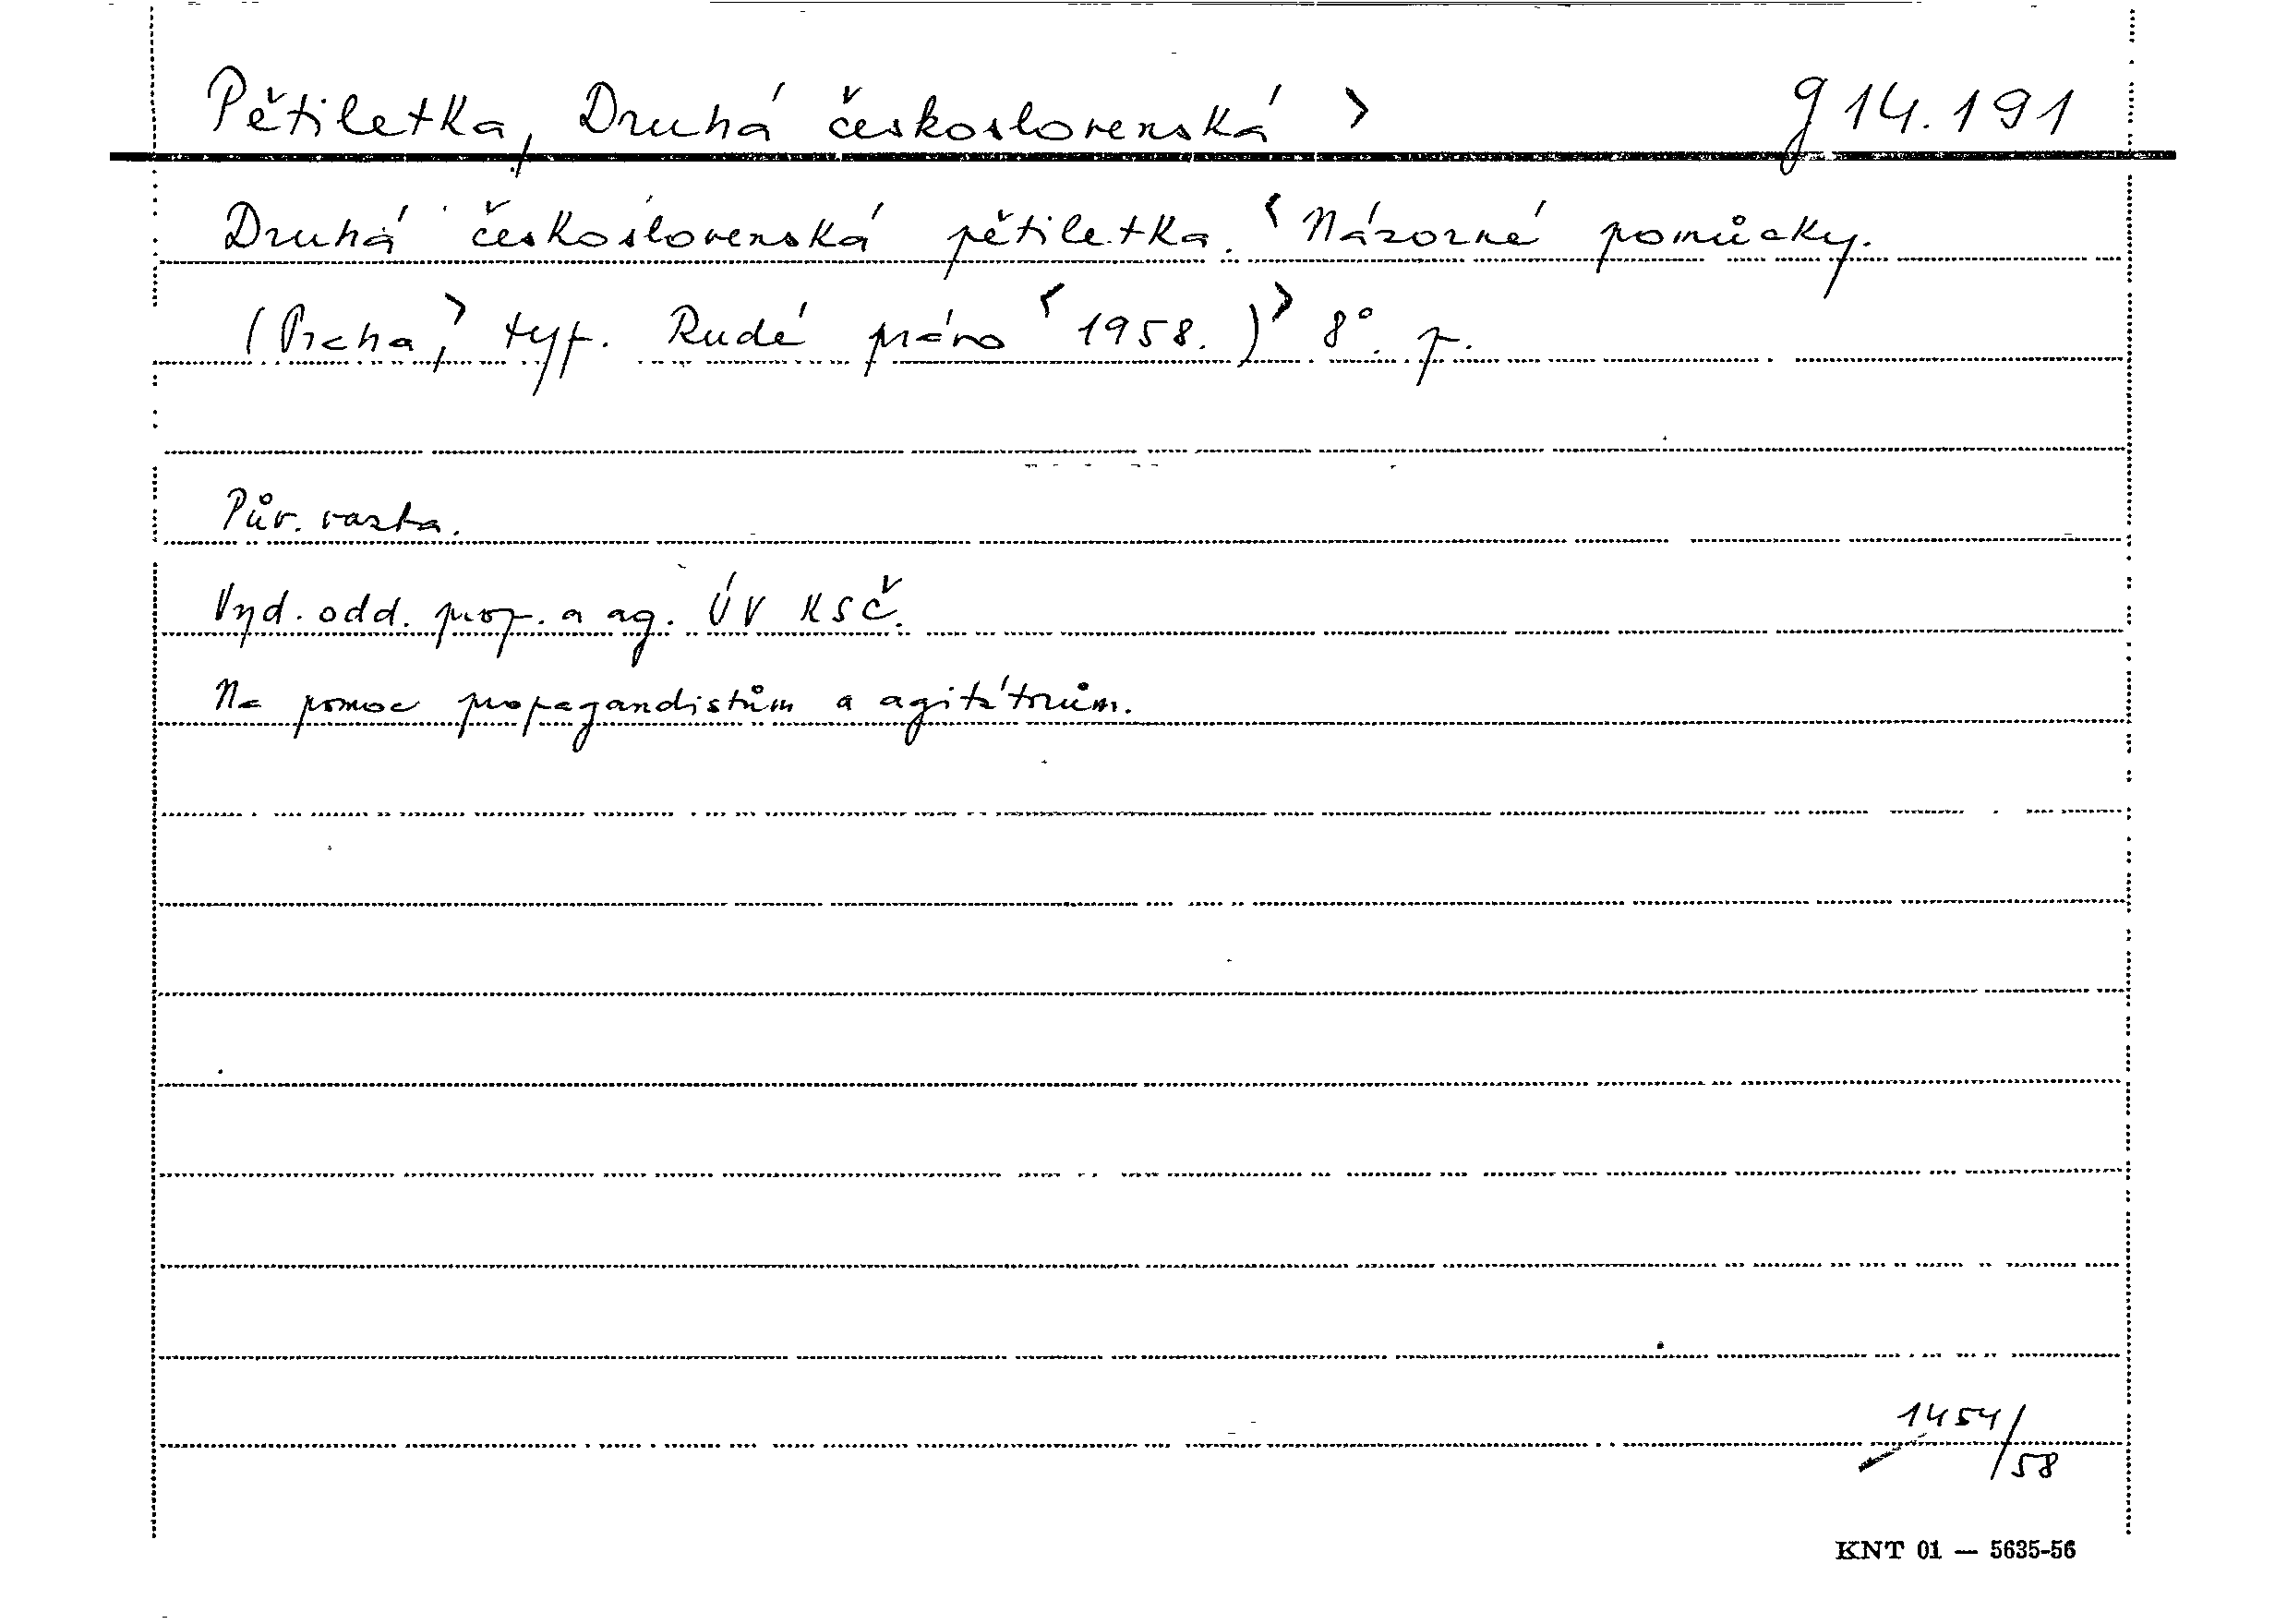 Pětiletka, Druhá československá > g 14.191
Druhá československá pětiletka. < Názorné pomůcky.
(Praha, > typ. Rudé právo < 1958.) > 8°. p.
Pův. vazba.
Vyd. odd. prop. a ag. ÚV KSČ.
Na pomoc propagandistům a agitátorům.
1454/58
KNT 01 — 5635-56